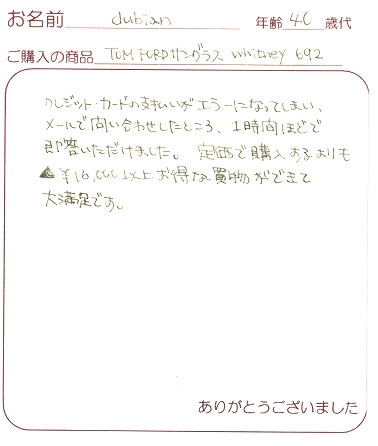 お名前 dubian 年齢 40 歳代
ご購入の商品 TOM FORD サングラス whitney 692
クレジット・カードの支払いがエラーになってしまい、
メールで問い合わせしたところ、1時間ほどで
即答いただけました。定価で購入するよりも
▲¥10,000以上お得な買物ができて
大満足です。
ありがとうございました